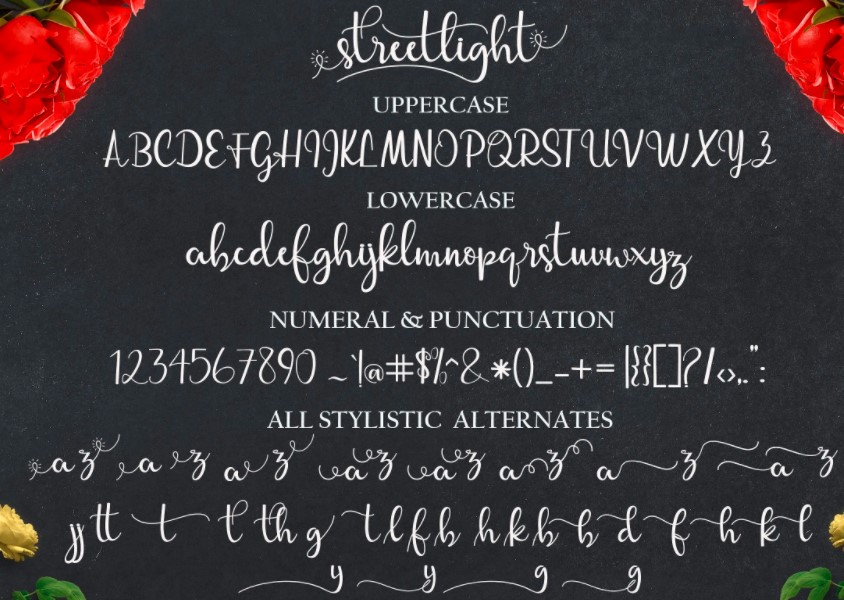 streetlight
UPPERCASE
ABCDEFGHIJKLMNOPQRSTUVWXYZ
LOWERCASE
abcdefghijklmnopqrstuvwxyz
NUMERAL & PUNCTUATION
1234567890 ~`!@#$%^&*()_-+= |{}[]?/<>,.":
ALL STYLISTIC ALTERNATES
a z a z a z a z a z a z a z a z
jj tt t t th g t l f h h k b h d f h k l
y y g g